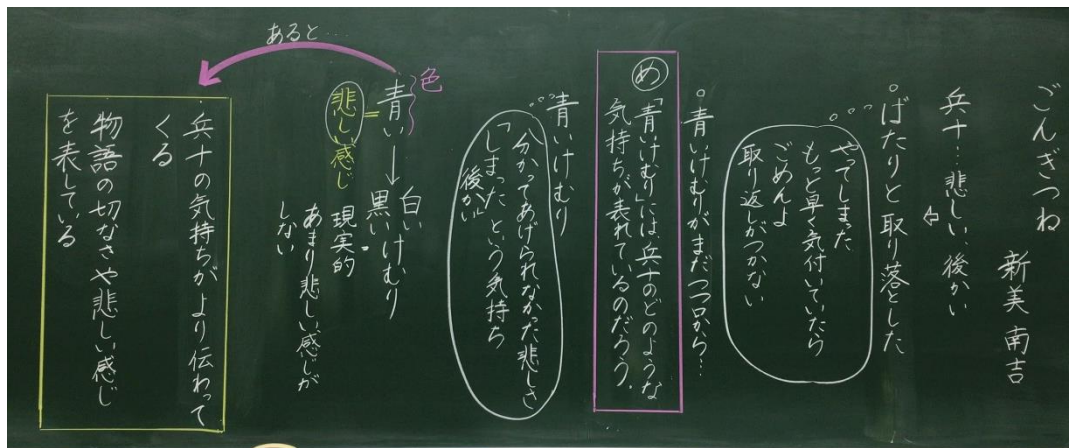 ごんぎつね
新美南吉
兵十…悲しい、後かい
⇦
。ばたりと取り落とした
やってしまった
もっと早く気付いていたら
ごめんよ
取り返しがつかない
。青いけむりがまだつつ口から…
め
「青いけむり」には、兵十のどのような
気持ちが表れているのだろう。
青いけむり
「分かってあげられなかった悲しさ
「しまった」という気持ち
後かい
色
青い→白い
黒いけむり
=
悲しい感じ
現実的。
あまり悲しい感じが
しない
あると…
兵十の気持ちがより伝わって
くる
物語の切なさや悲しい感じ
を表している